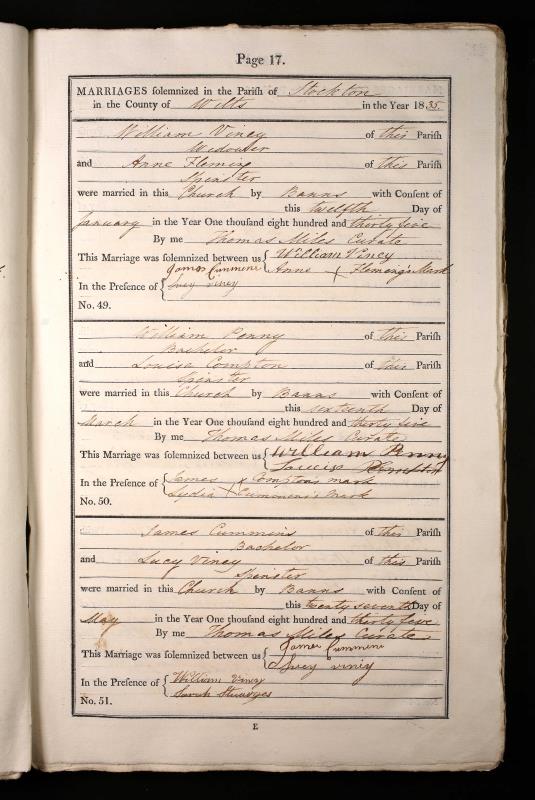 Page 17.
MARRIAGES solemnized in the Parish of Stockton
in the County of Wilts in the Year 1835.
William Viney of this Parish
Widower
and Anne Fleming of this Parish
Spinster
were married in this Church by Banns with Consent of
this twelfth Day of
January in the Year One thousand eight hundred and thirty five
By me Thomas Miles Curate
This Marriage was solemnized between us { William Viney
Anne X Fleming's Mark
In the Presence of { James Cummins
Lucy Viney
No. 49.
William Penny of this Parish
Bachelor
and Louisa Compton of this Parish
Spinster
were married in this Church by Banns with Consent of
this sixteenth Day of
March in the Year One thousand eight hundred and thirty five
By me Thomas Miles Curate
This Marriage was solemnized between us { William Penny
In the Presence of { James X Compton's mark
Lydia X Cummins's Mark
No. 50.
James Cummins of this Parish
Bachelor
and Lucy Viney of this Parish
Spinster
were married in this Church by Banns with Consent of
this twenty seventh Day of
May in the Year One thousand eight hundred and thirty five
By me Thomas Miles Curate
This Marriage was solemnized between us { James Cummins
Lucy viney
In the Presence of { William Viney
Sarah Sturges
No. 51.
E